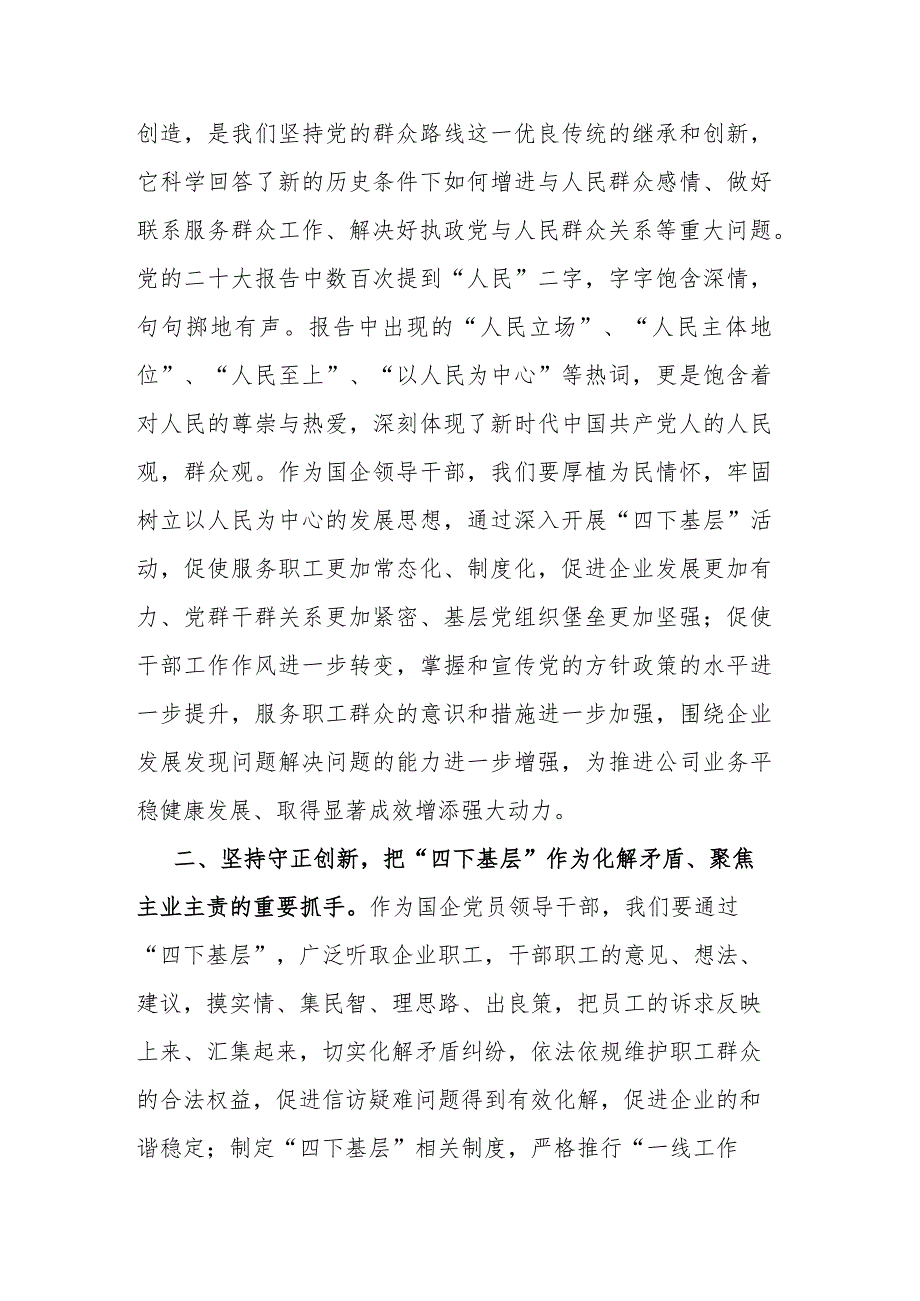 创造，是我们坚持党的群众路线这一优良传统的继承和创新，
它科学回答了新的历史条件下如何增进与人民群众感情、做好
联系服务群众工作、解决好执政党与人民群众关系等重大问题。
党的二十大报告中数百次提到“人民”二字，字字饱含深情，
句句掷地有声。报告中出现的“人民立场”、“人民主体地
位”、“人民至上”、“以人民为中心”等热词，更是饱含着
对人民的尊崇与热爱，深刻体现了新时代中国共产党人的人民
观，群众观。作为国企领导干部，我们要厚植为民情怀，牢固
树立以人民为中心的发展思想，通过深入开展“四下基层”活
动，促使服务职工更加常态化、制度化，促进企业发展更加有
力、党群干群关系更加紧密、基层党组织堡垒更加坚强；促使
干部工作作风进一步转变，掌握和宣传党的方针政策的水平进
一步提升，服务职工群众的意识和措施进一步加强，围绕企业
发展发现问题解决问题的能力进一步增强，为推进公司业务平
稳健康发展、取得显著成效增添强大动力。
二、坚持守正创新，把“四下基层”作为化解矛盾、聚焦
主业主责的重要抓手。作为国企党员领导干部，我们要通过
“四下基层”，广泛听取企业职工，干部职工的意见、想法、
建议，摸实情、集民智、理思路、出良策，把员工的诉求反映
上来、汇集起来，切实化解矛盾纠纷，依法依规维护职工群众
的合法权益，促进信访疑难问题得到有效化解，促进企业的和
谐稳定；制定“四下基层”相关制度，严格推行“一线工作